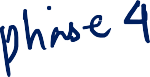 phase 4